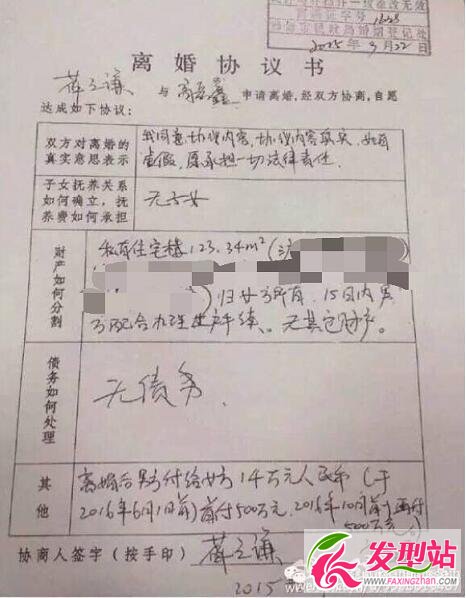 2015年9月22日
离婚协议书
薛之谦 与 高磊鑫 申请离婚,经双方协商,自愿
达成如下协议:
双方对离婚的
真实意思表示
我同意协议内容,协议内容真实,如有
虚假,愿承担一切法律责任
子女抚养关系
如何确立,抚
养费如何承担
无子女
财产如何分割
私有住宅楼123.34m²(沪
)归女方所有,15日内男
方配合办理过户手续。无其它财产。
债务如何处理
无债务.
其他
离婚后男方付给女方1千万元人民币(于
2016年6月1日前)首付500万元,2016年10月前再付
500万元
协商人签字(按手印) 薛之谦
2015
发型站
www.faxingzhan.com